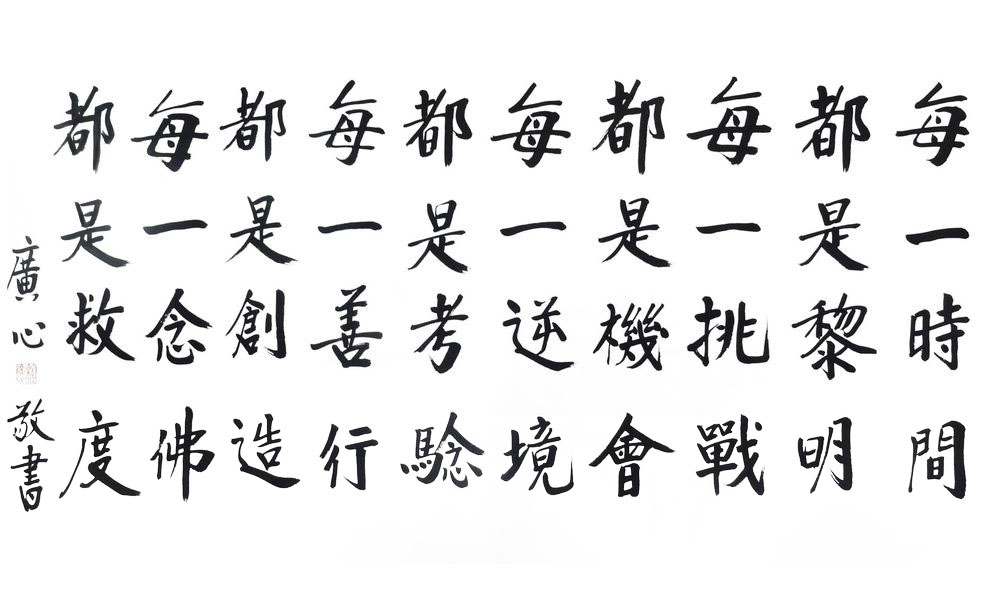 每一時間
都是黎明
每一挑戰
都是機會
每一逆境
都是考騐
每一善行
都是創造
每一念佛
都是救度
廣心敬書